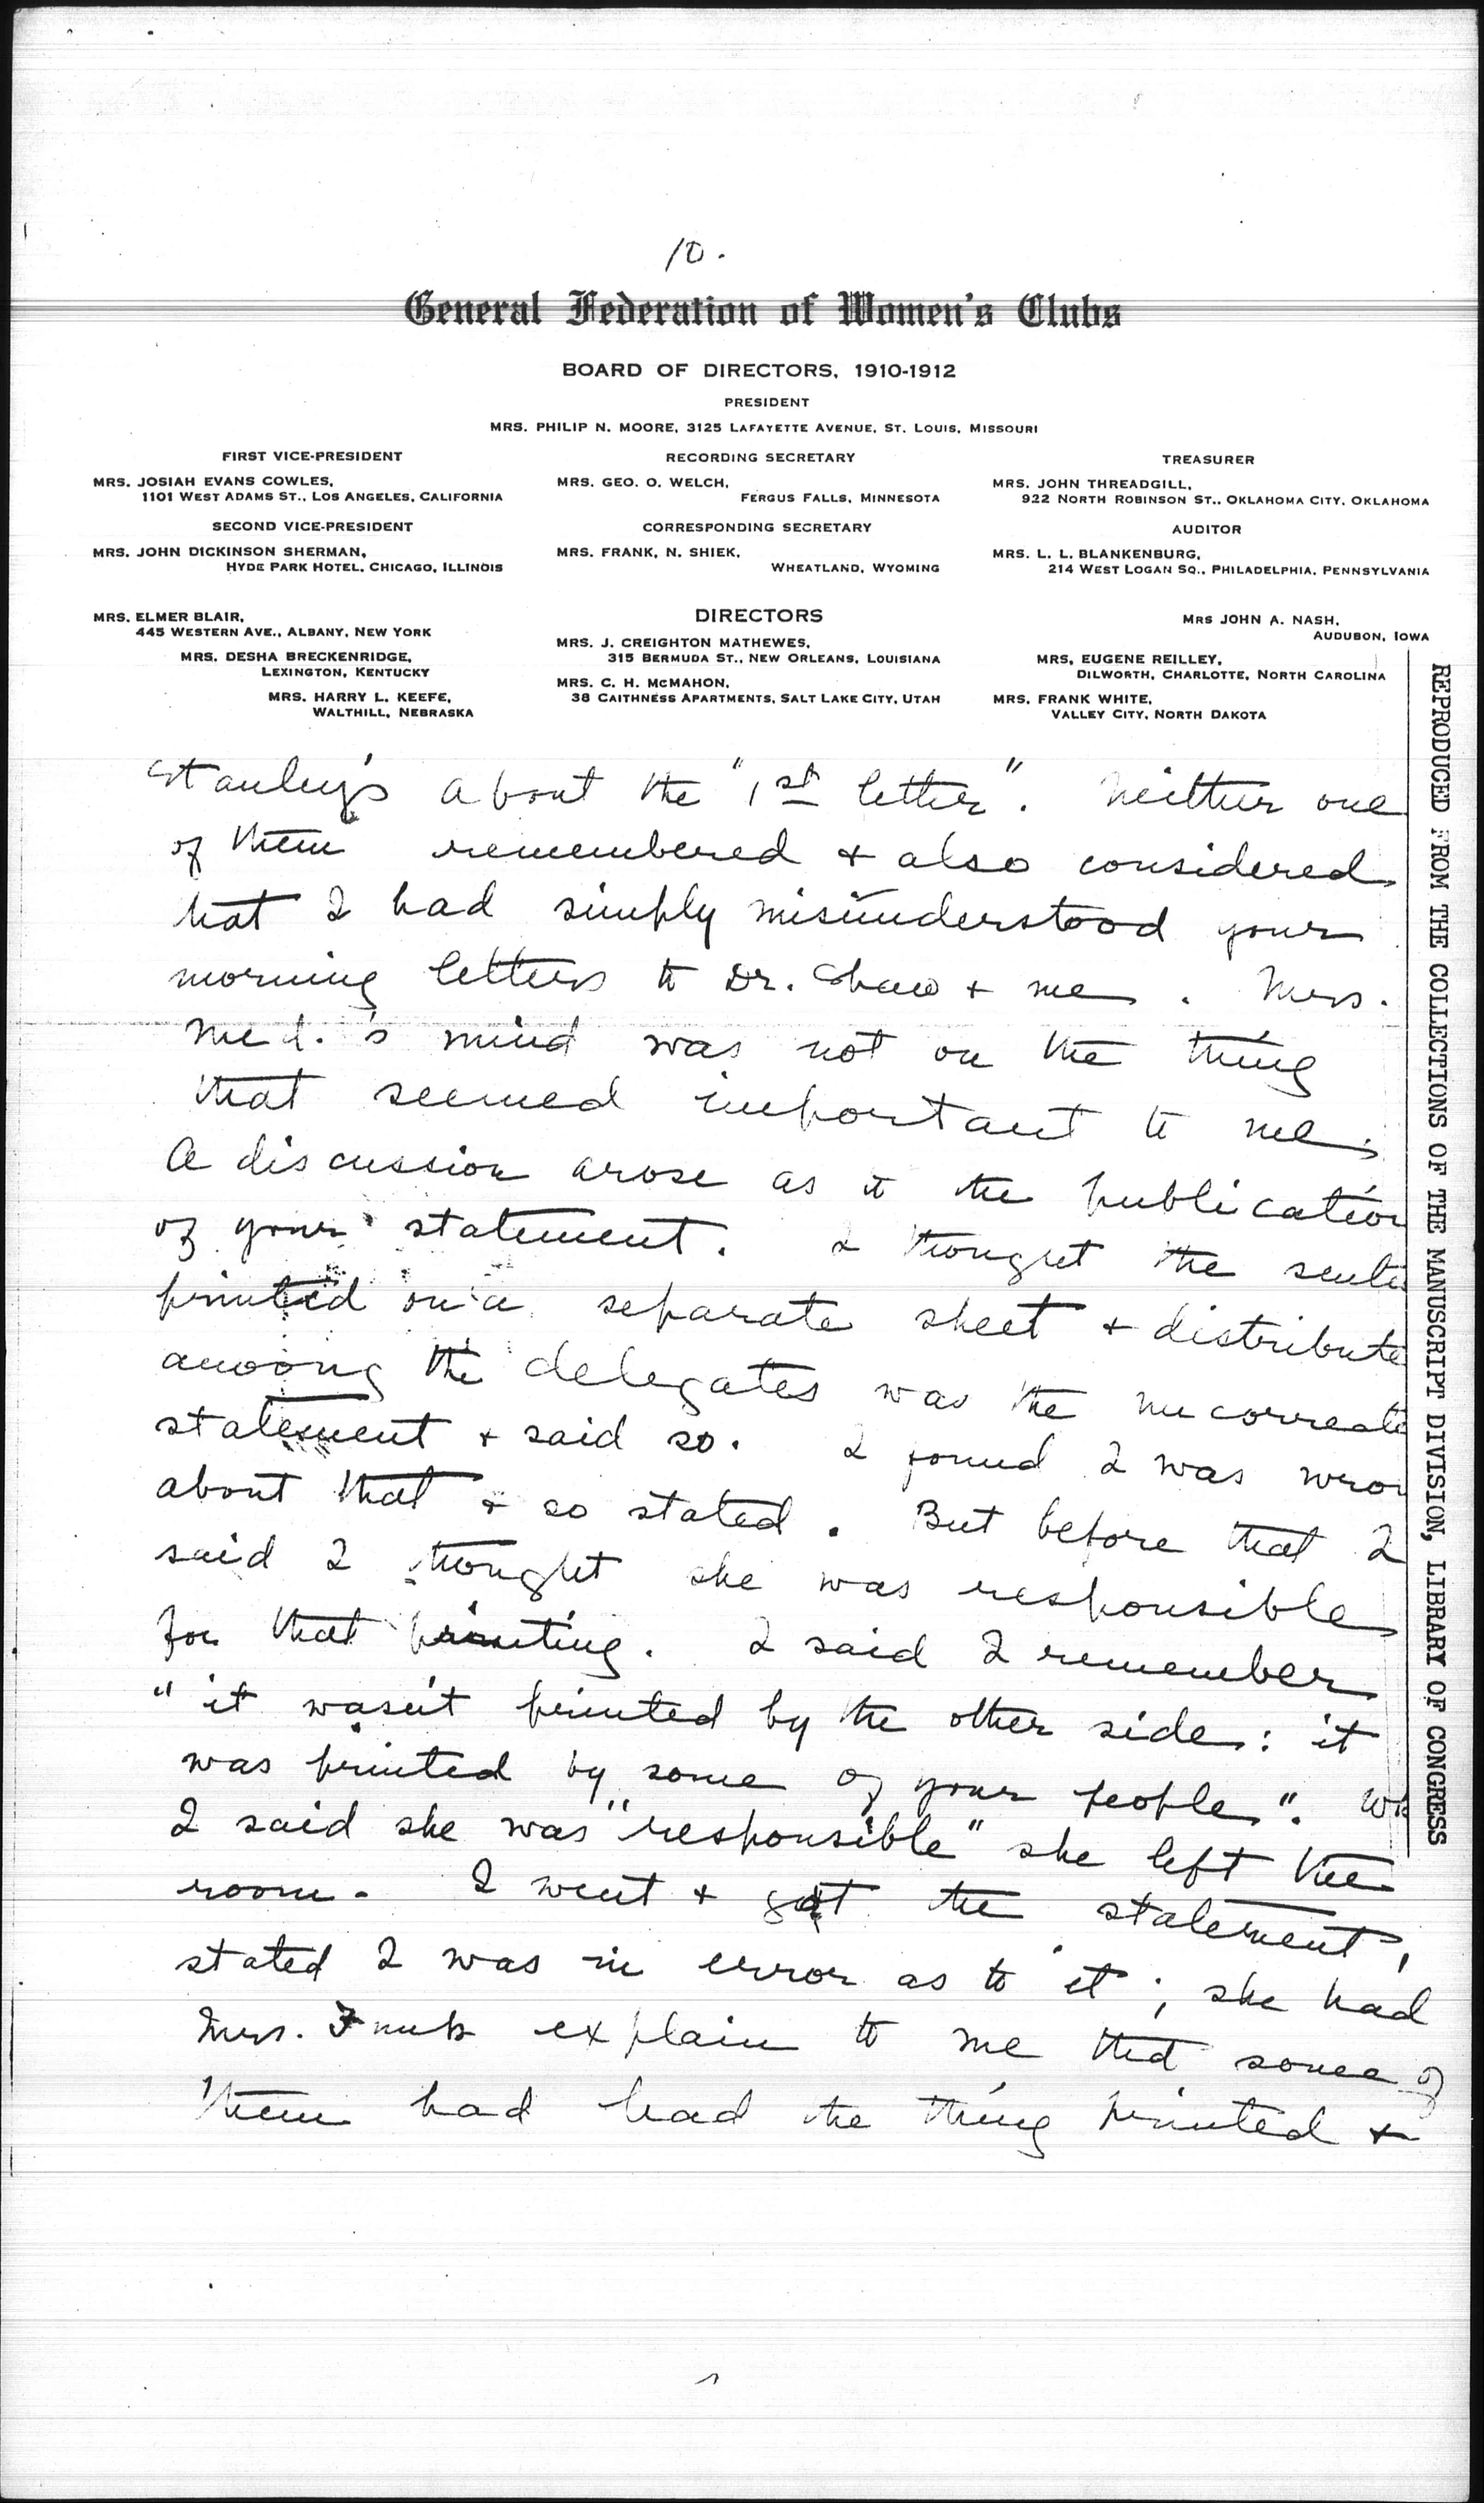 10.
General Federation of Women's Clubs
BOARD OF DIRECTORS, 1910-1912
PRESIDENT
MRS. PHILIP N. MOORE, 3125 LAFAYETTE AVENUE, ST. LOUIS, MISSOURI
FIRST VICE-PRESIDENT
MRS. JOSIAH EVANS COWLES,
1101 WEST ADAMS ST., LOS ANGELES, CALIFORNIA
SECOND VICE-PRESIDENT
MRS. JOHN DICKINSON SHERMAN,
HYDE PARK HOTEL, CHICAGO, ILLINOIS
RECORDING SECRETARY
MRS. GEO. O. WELCH,
FERGUS FALLS, MINNESOTA
CORRESPONDING SECRETARY
MRS. FRANK, N. SHIEK,
WHEATLAND, WYOMING
TREASURER
MRS. JOHN THREADGILL,
922 NORTH ROBINSON ST., OKLAHOMA CITY, OKLAHOMA
AUDITOR
MRS. L. L. BLANKENBURG,
214 WEST LOGAN SQ., PHILADELPHIA, PENNSYLVANIA
DIRECTORS
MRS. ELMER BLAIR,
445 WESTERN AVE., ALBANY, NEW YORK
MRS. DESHA BRECKENRIDGE,
LEXINGTON, KENTUCKY
MRS. HARRY L. KEEFE,
WALTHILL, NEBRASKA
MRS. J. CREIGHTON MATHEWES,
315 BERMUDA ST., NEW ORLEANS, LOUISIANA
MRS. C. H. MCMAHON,
38 CAITHNESS APARTMENTS, SALT LAKE CITY, UTAH
MRS JOHN A. NASH,
AUDUBON, IOWA
MRS. EUGENE REILLEY,
DILWORTH, CHARLOTTE, NORTH CAROLINA
MRS. FRANK WHITE,
VALLEY CITY, NORTH DAKOTA
Stanley's about the "1st letter". Neither one
of them remembered & also considered
that I had simply misunderstood your
morning letters to Dr. Shaw & me. Mrs.
McC.'s mind was not on the thing
that seemed important to me;
A discussion arose as to the publication
of your statement. I thought the
printed on a separate sheet & distribute
among the delegates was the
statement & said so. I found I was
about that & so stated. But before that I
said I thought she was responsible
for that printing. I said I remember
"it wasn't printed by the other side: it
was printed by some of your people".
I said she was "responsible" she left the
room. I went & got the statement,
stated I was in error as to it; she had
Mrs. Funk explain to me that some of
them had had the thing printed &
REPRODUCED FROM THE COLLECTIONS OF THE MANUSCRIPT DIVISION, LIBRARY OF CONGRESS